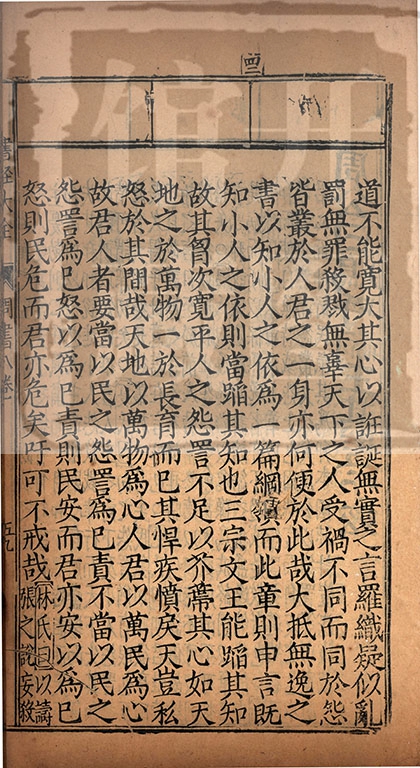 道不能寬大其心以誑誕無實之言羅織疑似亂
罰無罪殺戮無辜天下之人受禍不同而同於怨
皆叢於人君之一身亦何便於此哉大抵無逸之
書以知小人之依爲一篇綱領而此章則申言既
知小人之依則當蹈其知也三宗文王能蹈其知
故其胷次寬平人之怨詈不足以芥蔕其心如天
地之於萬物一於長育而已其悍疾憤戾天豈私
怒於其間哉天地以萬物爲心人君以萬民爲心
故君人者要當以民之怨詈爲己責不當以民之
怨詈爲己怒以爲己責則民安而君亦安以爲己
怒則民危而君亦危矣吁可不戒哉
林氏曰以譸
張之說妄殺
書經大全
周書八卷
五九